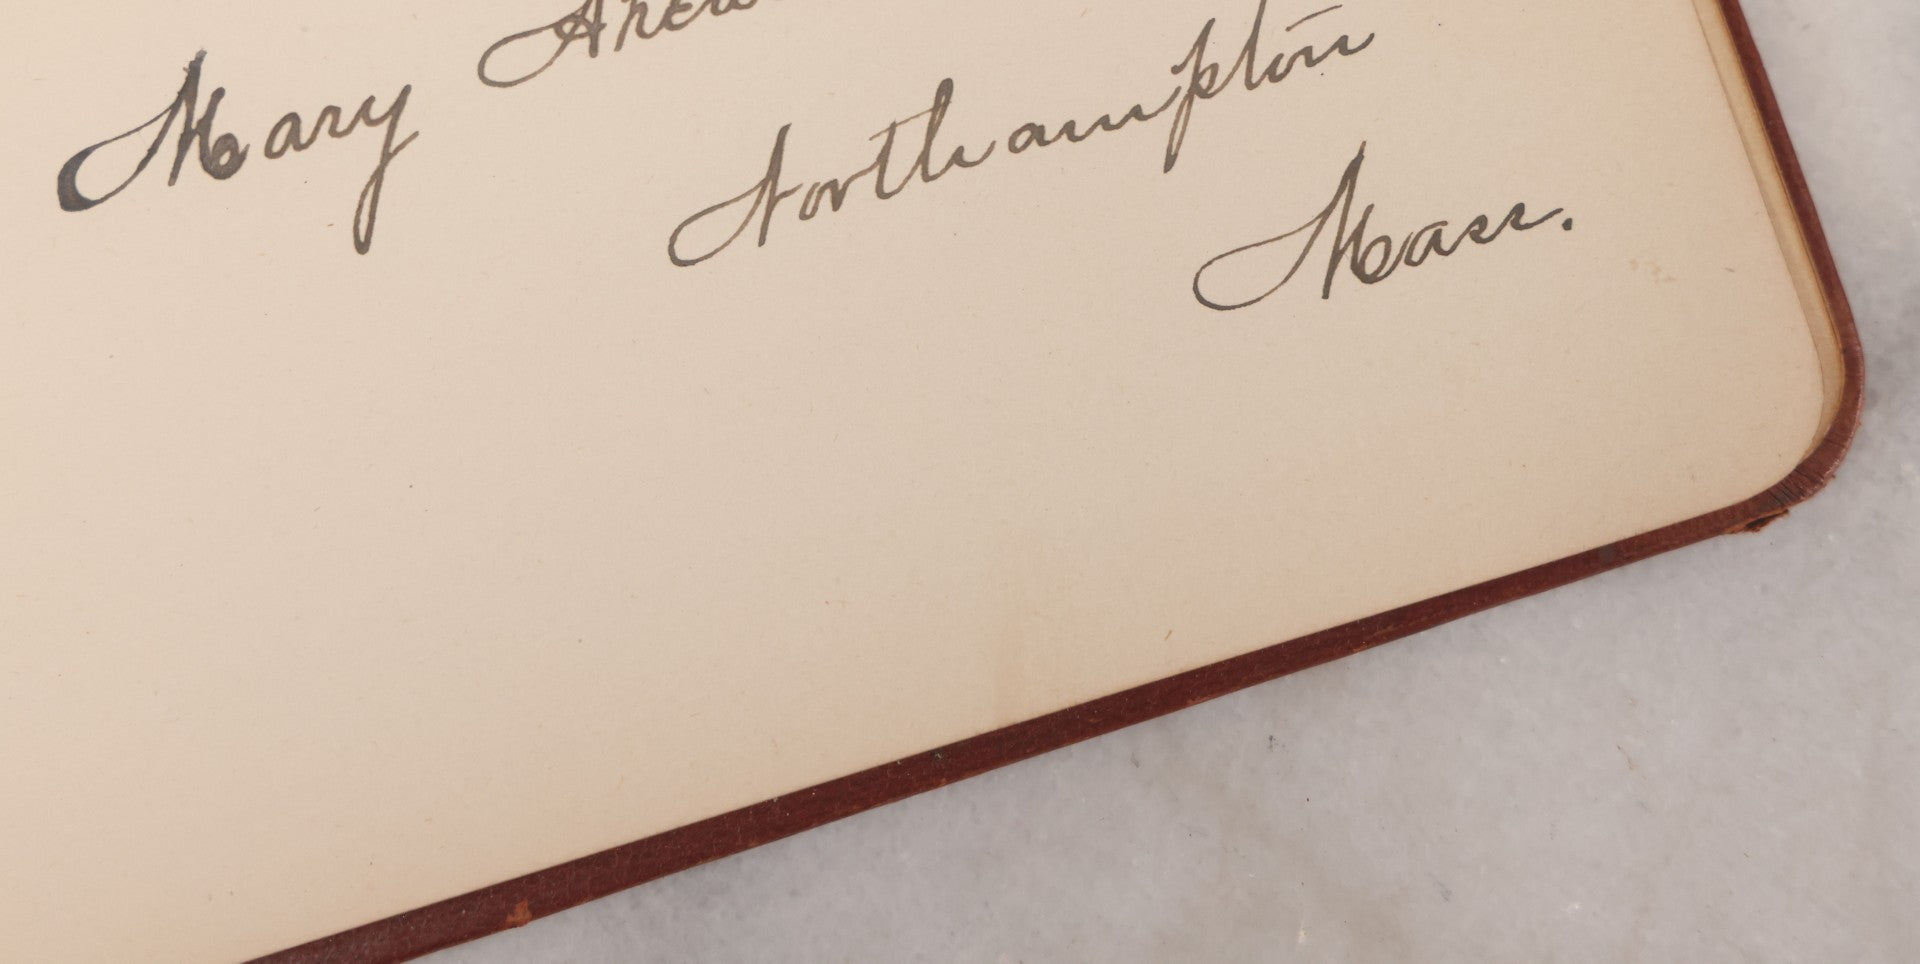 Mary
Northampton
Mass.